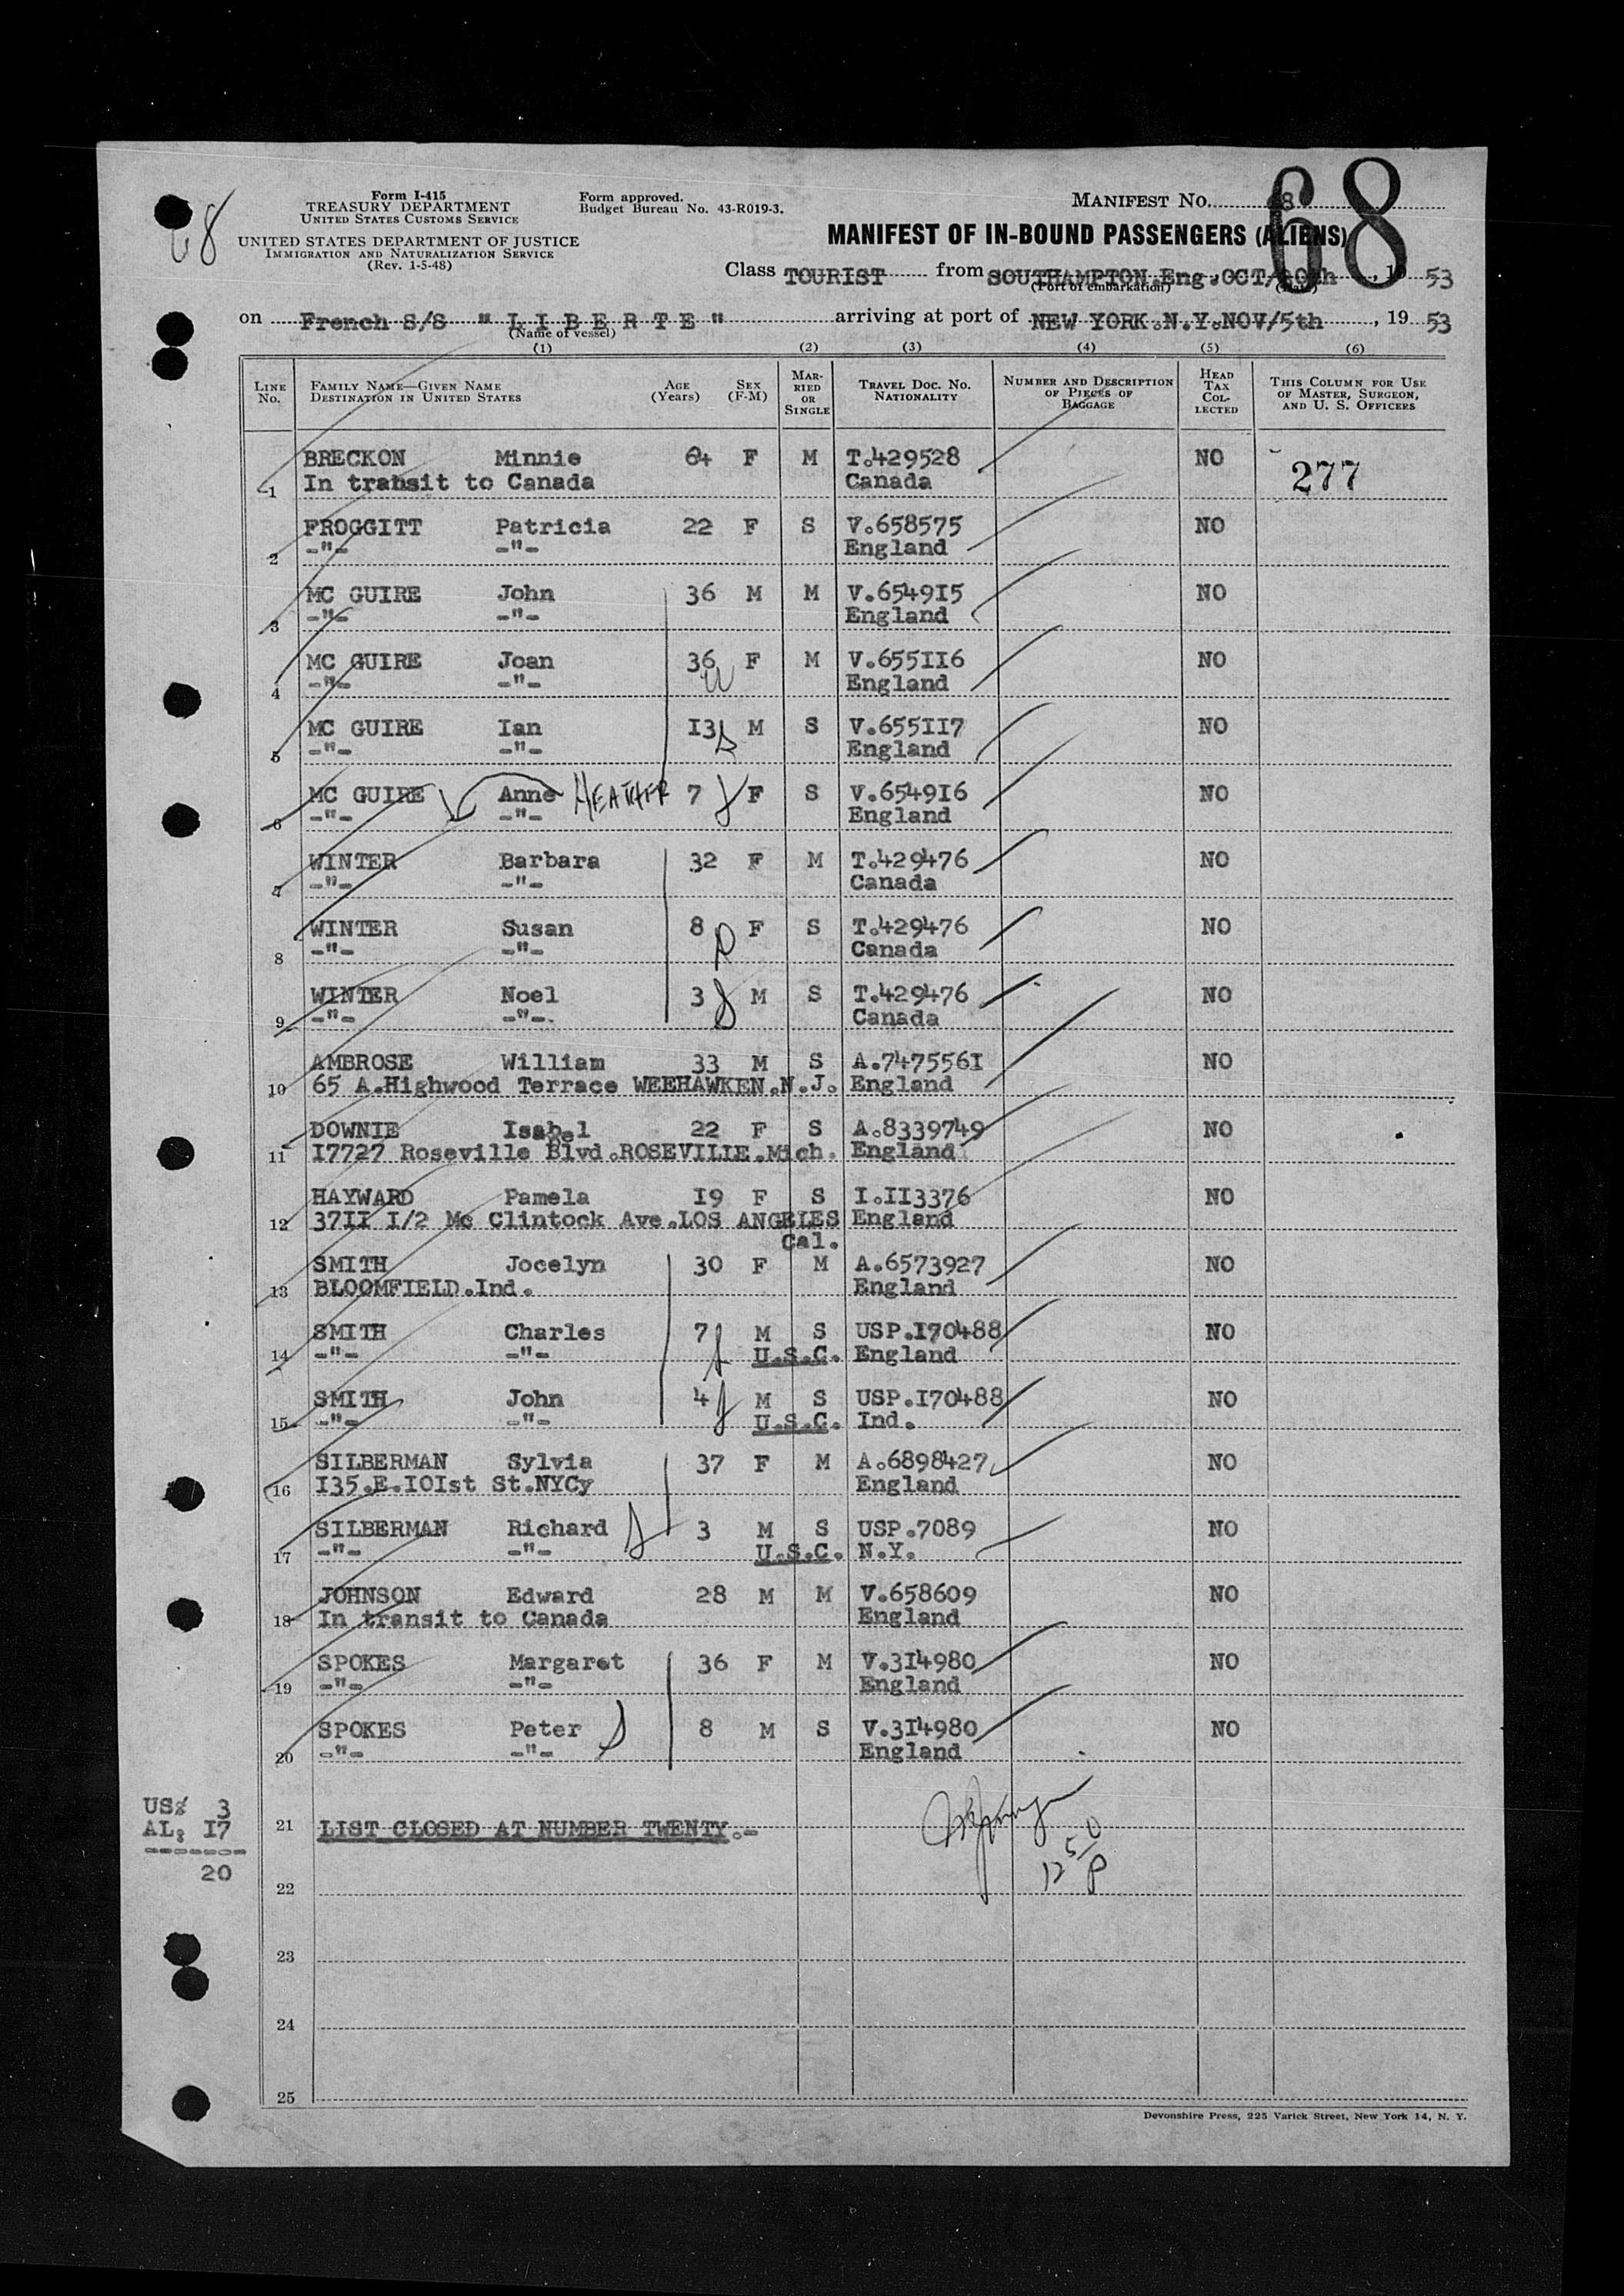 Form I-415
TREASURY DEPARTMENT
UNITED STATES CUSTOMS SERVICE
UNITED STATES DEPARTMENT OF JUSTICE
IMMIGRATION AND NATURALIZATION SERVICE
(Rev. 1-5-48)
Form approved.
Budget Bureau No. 43-R019-3.
68
MANIFEST NO. 68
MANIFEST OF IN-BOUND PASSENGERS (ALIENS)
Class TOURIST from SOUTHAMPTON.Eng.OCT/ , 19 53
(Port of embarkation) (Date)
on French S/S "L I B E R T E" arriving at port of NEW YORK.N.Y.NOV/5th , 19 53
(Name of vessel)
(1) (2) (3) (4) (5) (6)
LINE No. FAMILY NAME—GIVEN NAME DESTINATION IN UNITED STATES AGE (Years) SEX (F-M) MARRIED OR SINGLE TRAVEL DOC. NO. NATIONALITY NUMBER AND DESCRIPTION OF PIECES OF BAGGAGE HEAD TAX COLLECTED THIS COLUMN FOR USE OF MASTER, SURGEON, AND U. S. OFFICERS
BRECKON Minnie 64 F M T.429528 NO 277
1 In transit to Canada Canada
FROGGITT Patricia 22 F S V.658575 NO
2 -"- -"- England
MC GUIRE John 36 M M V.654915 NO
3 -"- -"- England
MC GUIRE Joan 36 F M V.655116 NO
4 -"- -"- England
MC GUIRE Ian 13 M S V.655117 NO
5 -"- -"- England
MC GUIRE Anne HEATHER 7 F S V.654916 NO
6 -"- -"- England
WINTER Barbara 32 F M T.429476 NO
7 -"- -"- Canada
WINTER Susan 8 F S T.429476 NO
8 -"- -"- Canada
WINTER Noel 3 M S T.429476 NO
9 -"- -"- Canada
AMBROSE William 33 M S A.7475561 NO
10 65 A.Highwood Terrace WEEHAWKEN.N.J. England
DOWNIE Isabel 22 F S A.8339749 NO
11 17727 Roseville Blvd.ROSEVILIE.Mich. England
HAYWARD Pamela 19 F S I.113376 NO
12 3711 1/2 Mc Clintock Ave.LOS ANGELES England
Cal.
SMITH Jocelyn 30 F M A.6573927 NO
13 BLOOMFIELD.Ind. England
SMITH Charles 7 M S USP.170488 NO
14 -"- -"- U.S.C. England
SMITH John 4 M S USP.170488 NO
15 -"- -"- U.S.C. Ind.
SILBERMAN Sylvia 37 F M A.6898427 NO
16 135.E.101st St.NYCy England
SILBERMAN Richard 3 M S USP.7089 NO
17 -"- -"- U.S.C. N.Y.
JOHNSON Edward 28 M M V.658609 NO
18 In transit to Canada England
SPOKES Margaret 36 F M V.314980 NO
19 -"- -"- England
SPOKES Peter 8 M S V.314980 NO
20 -"- -"- England
US: 3
AL: 17
-------
20
21 LIST CLOSED AT NUMBER TWENTY.-
12 50 P
22
23
24
25
Devonshire Press, 225 Varick Street, New York 14, N. Y.